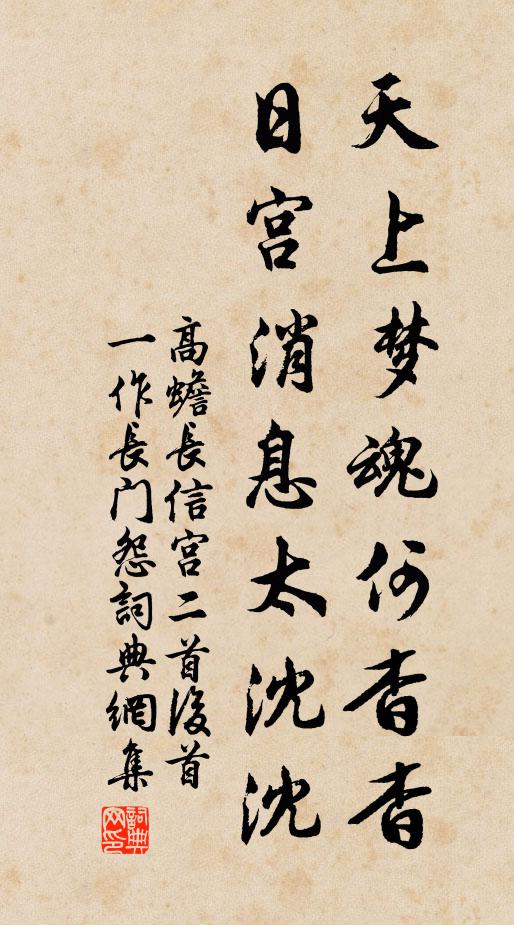 天上梦魂何杳杳
日宫消息太沈沈
高蟾長信宮二首後首
一作長门怨詞典網集
詞典网印